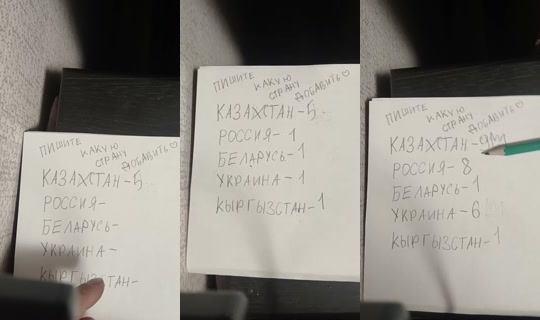 ПИШИТЕ КАКУЮ СТРАНУ ДОБАВИТЬ♡
КАЗАХСТАН-5
РОССИЯ-
БЕЛАРУСЬ-
УКРАИНА-
КЫРГЫЗСТАН-
ПИШИТЕ КАКУЮ СТРАНУ ДОБАВИТЬ♡
КАЗАХСТАН-5
РОССИЯ-1
БЕЛАРУСЬ-1
УКРАИНА-1
КЫРГЫЗСТАН-1
ПИШИТЕ КАКУЮ СТРАНУ ДОБАВИТЬ♡
КАЗАХСТАН-
РОССИЯ-8
БЕЛАРУСЬ-1
УКРАИНА-6
КЫРГЫЗСТАН-1